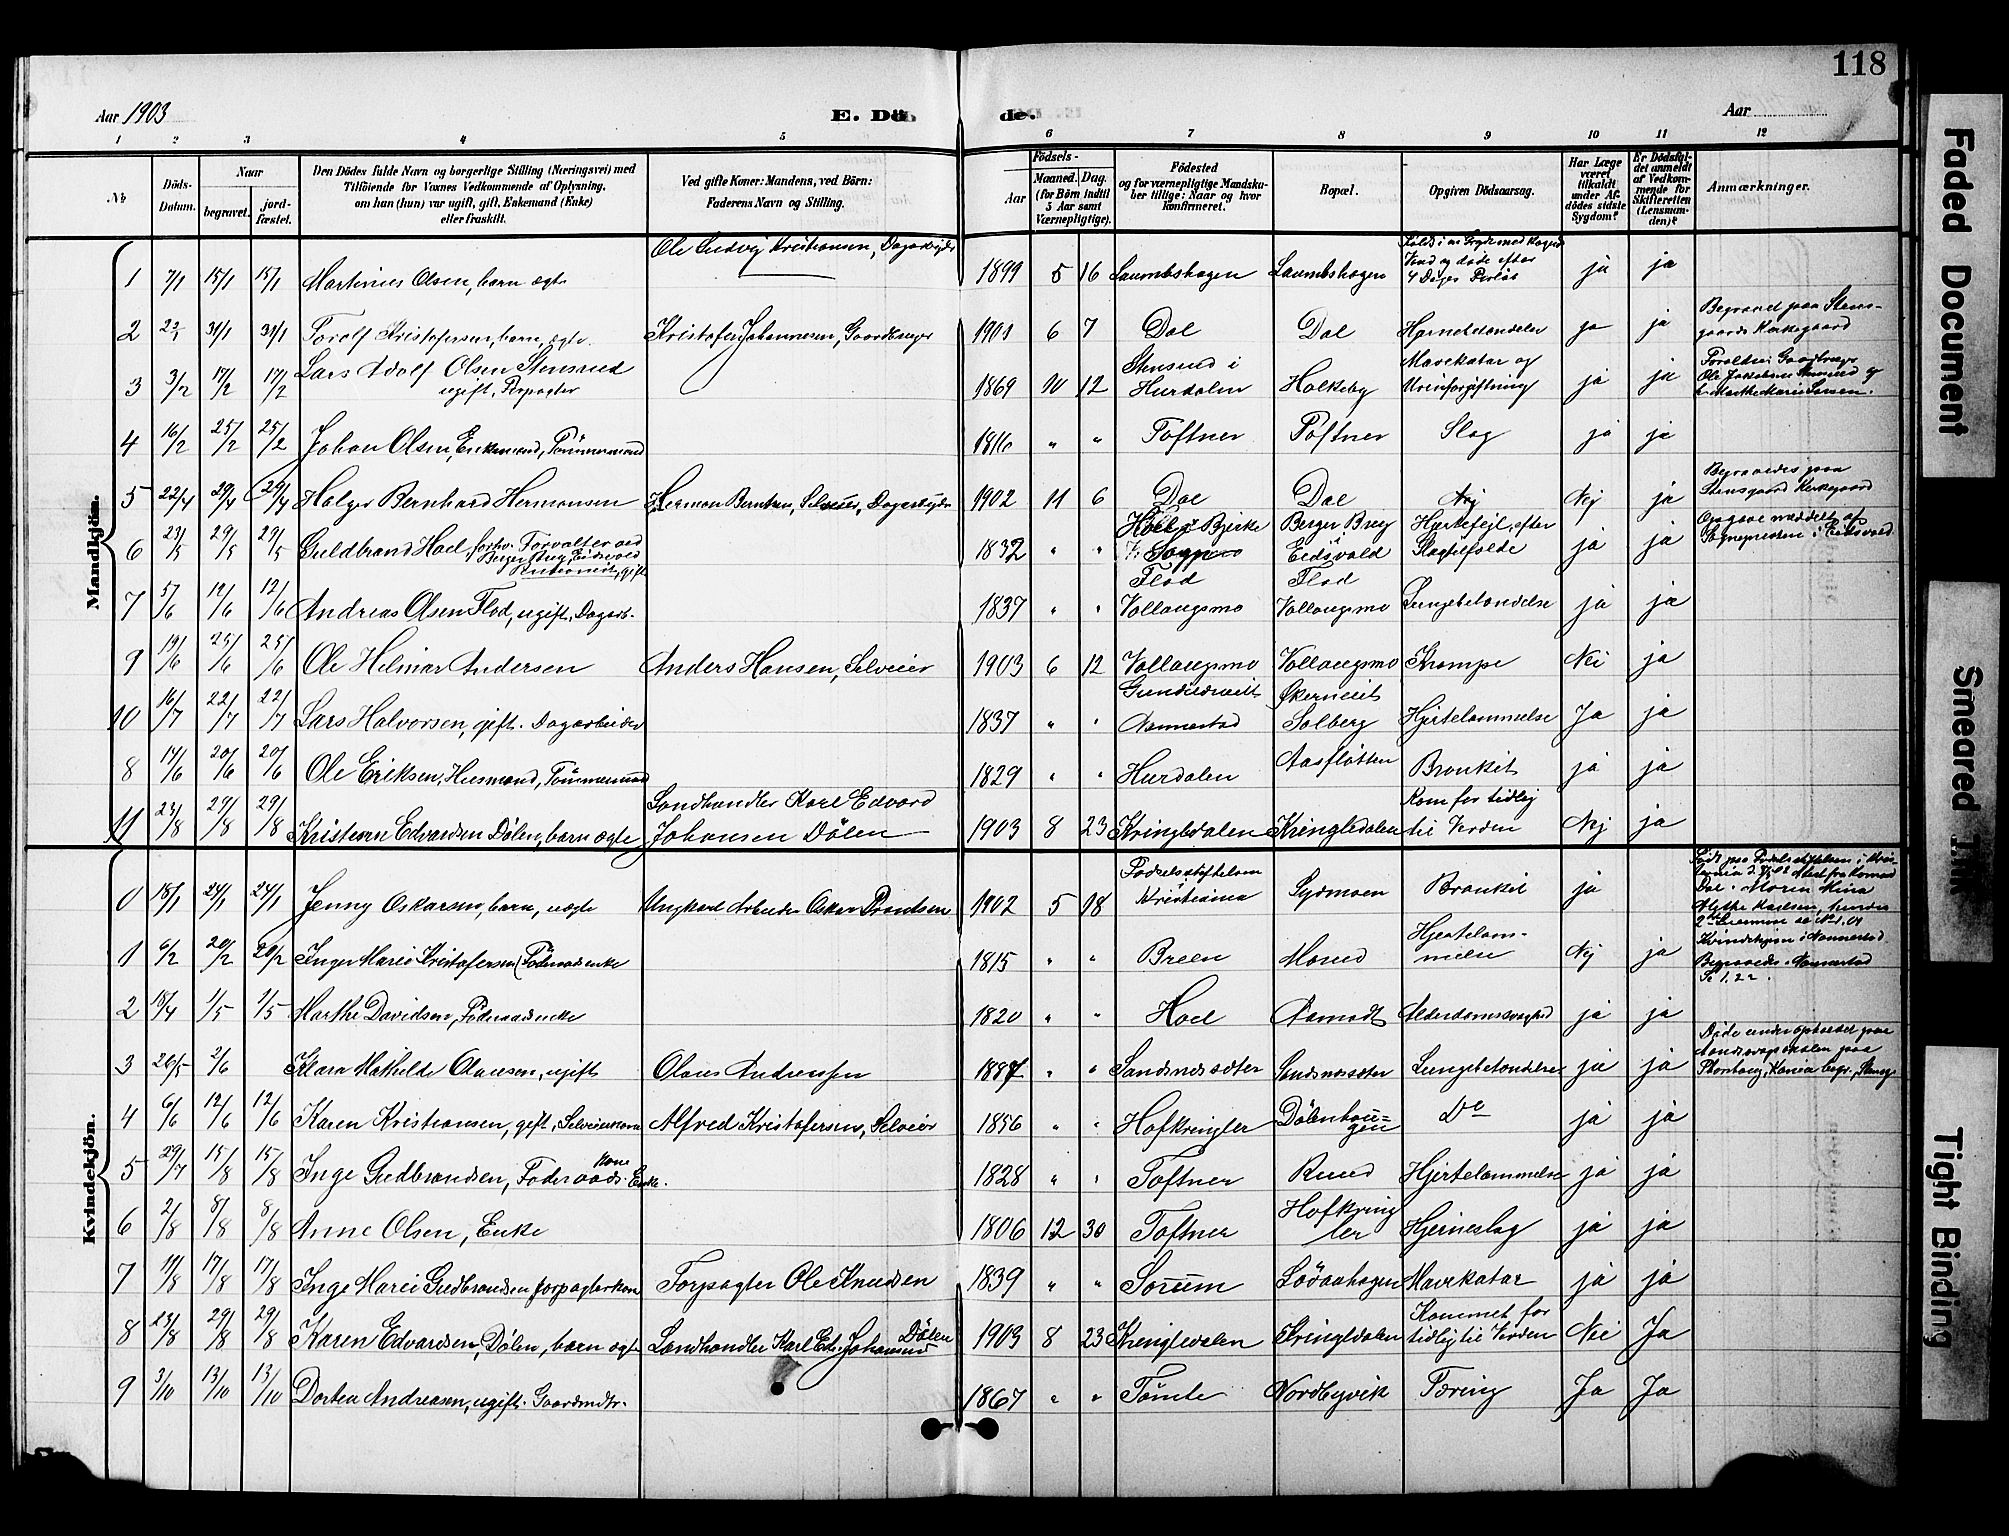 118
Aar 1903
E. Dö de.
Aar
1 2 3 4 5 6 7 8 9 10 11 12
No
Döds-Datum.
Naar
begravet.
jord-fæstet.
Den Dödes fulde Navn og borgerlige Stilling (Næringsvei) med
Tilföiende for Voxnes Vedkommende af Oplysning,
om han (hun) var ugift, gift, Enkemand (Enke)
eller fraskilt.
Ved gifte Koner: Mandens, ved Börn:
Faderens Navn og Stilling.
Födsels-
Aar
Maaned. Dag.
(for Börn indtil
5 Aar samt
Værnepligtige).
Födested
og for værnepligtige Mandsku-
ber tillige: Naar og hvor
konfirmeret.
Bopæl.
Opgiven Dödsaarsag.
Har Læge
været
tilkaldt
under Af-
dödes sidste
Sygdom?
Er Dödsfal-
det anmeldt
af Vedkom-
mende for
Skifteretten
(Lensman-
den)?
Anmærkninger.
Mandkjön.
1 7/1 15/1 15/1 Martinius Olsen, barn ægte Ole Ludvig Kristiansen, Dagarbeider 1899 5 16 Laumbshagen Laumbshagen 4 Dages ja ja
2 31/1 31/1 Torolf Kristofersen, barn, ægte Kristofer Johannesen, Gaardbruger 1901 6 7 Dal Dal Hjernebetændelse ja ja Begravet paa Stens-
gaards Kirkegaard
3 3/2 17/2 17/2 Lars Adolf Olsen Stensrud
ugift, Forpagter 1869 10 12 Stensrud i
Hurdalen Holkeby Mavekatar og
Urinforgiftning ja ja Forældre: Gaardbruger
Ole Jakobsen Stensrud og
h. Marthe Marie Larsen.
4 16/2 25/2 25/2 Johan Olsen, Enkemand, Tömmermand 1816 " " Toftner Toftner Slag ja ja
5 22/4 29/4 29/4 Holger Bernhard Hermansen Herman Berntsen, Selveier, Dagarbeider 1902 11 6 Dal Dal Nej Nej ja Begravedes paa
Stensgaard Kirkegaard
6 23/5 29/5 29/5 Guldbrand Hoel, forhv. Forvalter ved
gift 1832 " " Bjerke
Sogn Berger Brug
Eidsvold Hjertefejl, efter
Slagtilfælde ja ja Opgave meddelt af
Sognepresten i Eidsvold
7 5/6 12/6 12/6 Andreas Olsen Flad, ugift, Dagarb. 1837 " " Flad
Vollaugsmo Flad
Vollaugsmo Lungebetændelse ja ja
9 19/6 25/6 25/6 Ole Helmar Andersen Anders Hansen, Selveier 1903 6 12 Vollaugsmo Vollaugsmo Krampe Nei ja
10 16/7 22/7 22/7 Lars Halvorsen, gift. Dagarbeider 1837 " " Nannestad Økerneiet
Solberg Hjertelammelse Ja ja
8 14/6 20/6 20/6 Ole Eriksen, Husmand, Tömmermand 1829 " " Hurdalen Aasfløtten Bronkit ja ja
11 23/8 29/8 29/8 Kristian Edvardsen Dølen, barn ægte Landhandler Karl Edvard
Johansen Dølen 1903 8 23 Kringledalen Kringledalen Kom for tidlig
til Verden Nej ja
Kvindekjön.
0 18/1 24/1 24/1 Jenny Oskarsen, barn, uægte Ungkarl Arbeider Oskar Frantsen 1902 5 18 Fødselsstiftelsen
i
Kristiania Sydmoen Bronkit ja Født paa Fødselsstiftelsen i Kri-
1 6/2 20/2 20/2 Inger Marie Kristofersen, Föderaadsenke 1815 " " Breen Moned Hjertelam-
melse Nej ja Begravedes i Nannestad
2 18/4 1/5 1/5 Marthe Davidsen, Föderaadsenke 1820 " " Hoel Aamodt Alderdomssvaghed ja ja
3 26/5 2/6 Klara Mathilde Olausen, ugift Olaus Andreassen 1887 " " Sandsnessæter Sandsnessæter Lungebetændelse ja ja Døde under opholdet paa
4 6/6 12/6 12/6 Karen Kristiansen, gift, Selveierkone Alfred Kristofersen, Selveier 1856 " " Hofkringler Dølenhau-
gen Do ja ja
5 29/7 15/8 15/8 Inge Gudbrandsen, Föderaads-kone Enke. 1828 " " Toftner Ruud Hjertelammelse ja ja
6 2/8 8/8 8/8 Anne Olsen, Enke 1806 12 30 Toftner Hofkring
ler Hjerneslag ja ja
7 11/8 17/8 17/8 Inge Marie Gudbrandsen Forpagterkone Forpagter Ole Knudsen 1839 " " Sørum Mavekatar ja ja
8 23/8 29/8 29/8 Karen Edvardsen, Dølen, barn ægte Landhandler Karl Edv. Johansen Dølen 1903 8 23 Kringledalen Kringledalen Kommet for
tidlig til Verden Nei Ja
9 3/10 13/10 13/10 Dortea Andreasen, ugift. Gaardmdtr. 1867 " " Tömte Nordbyvik Tæring Ja Ja
Faded Document
Smeared Ink
Tight Binding